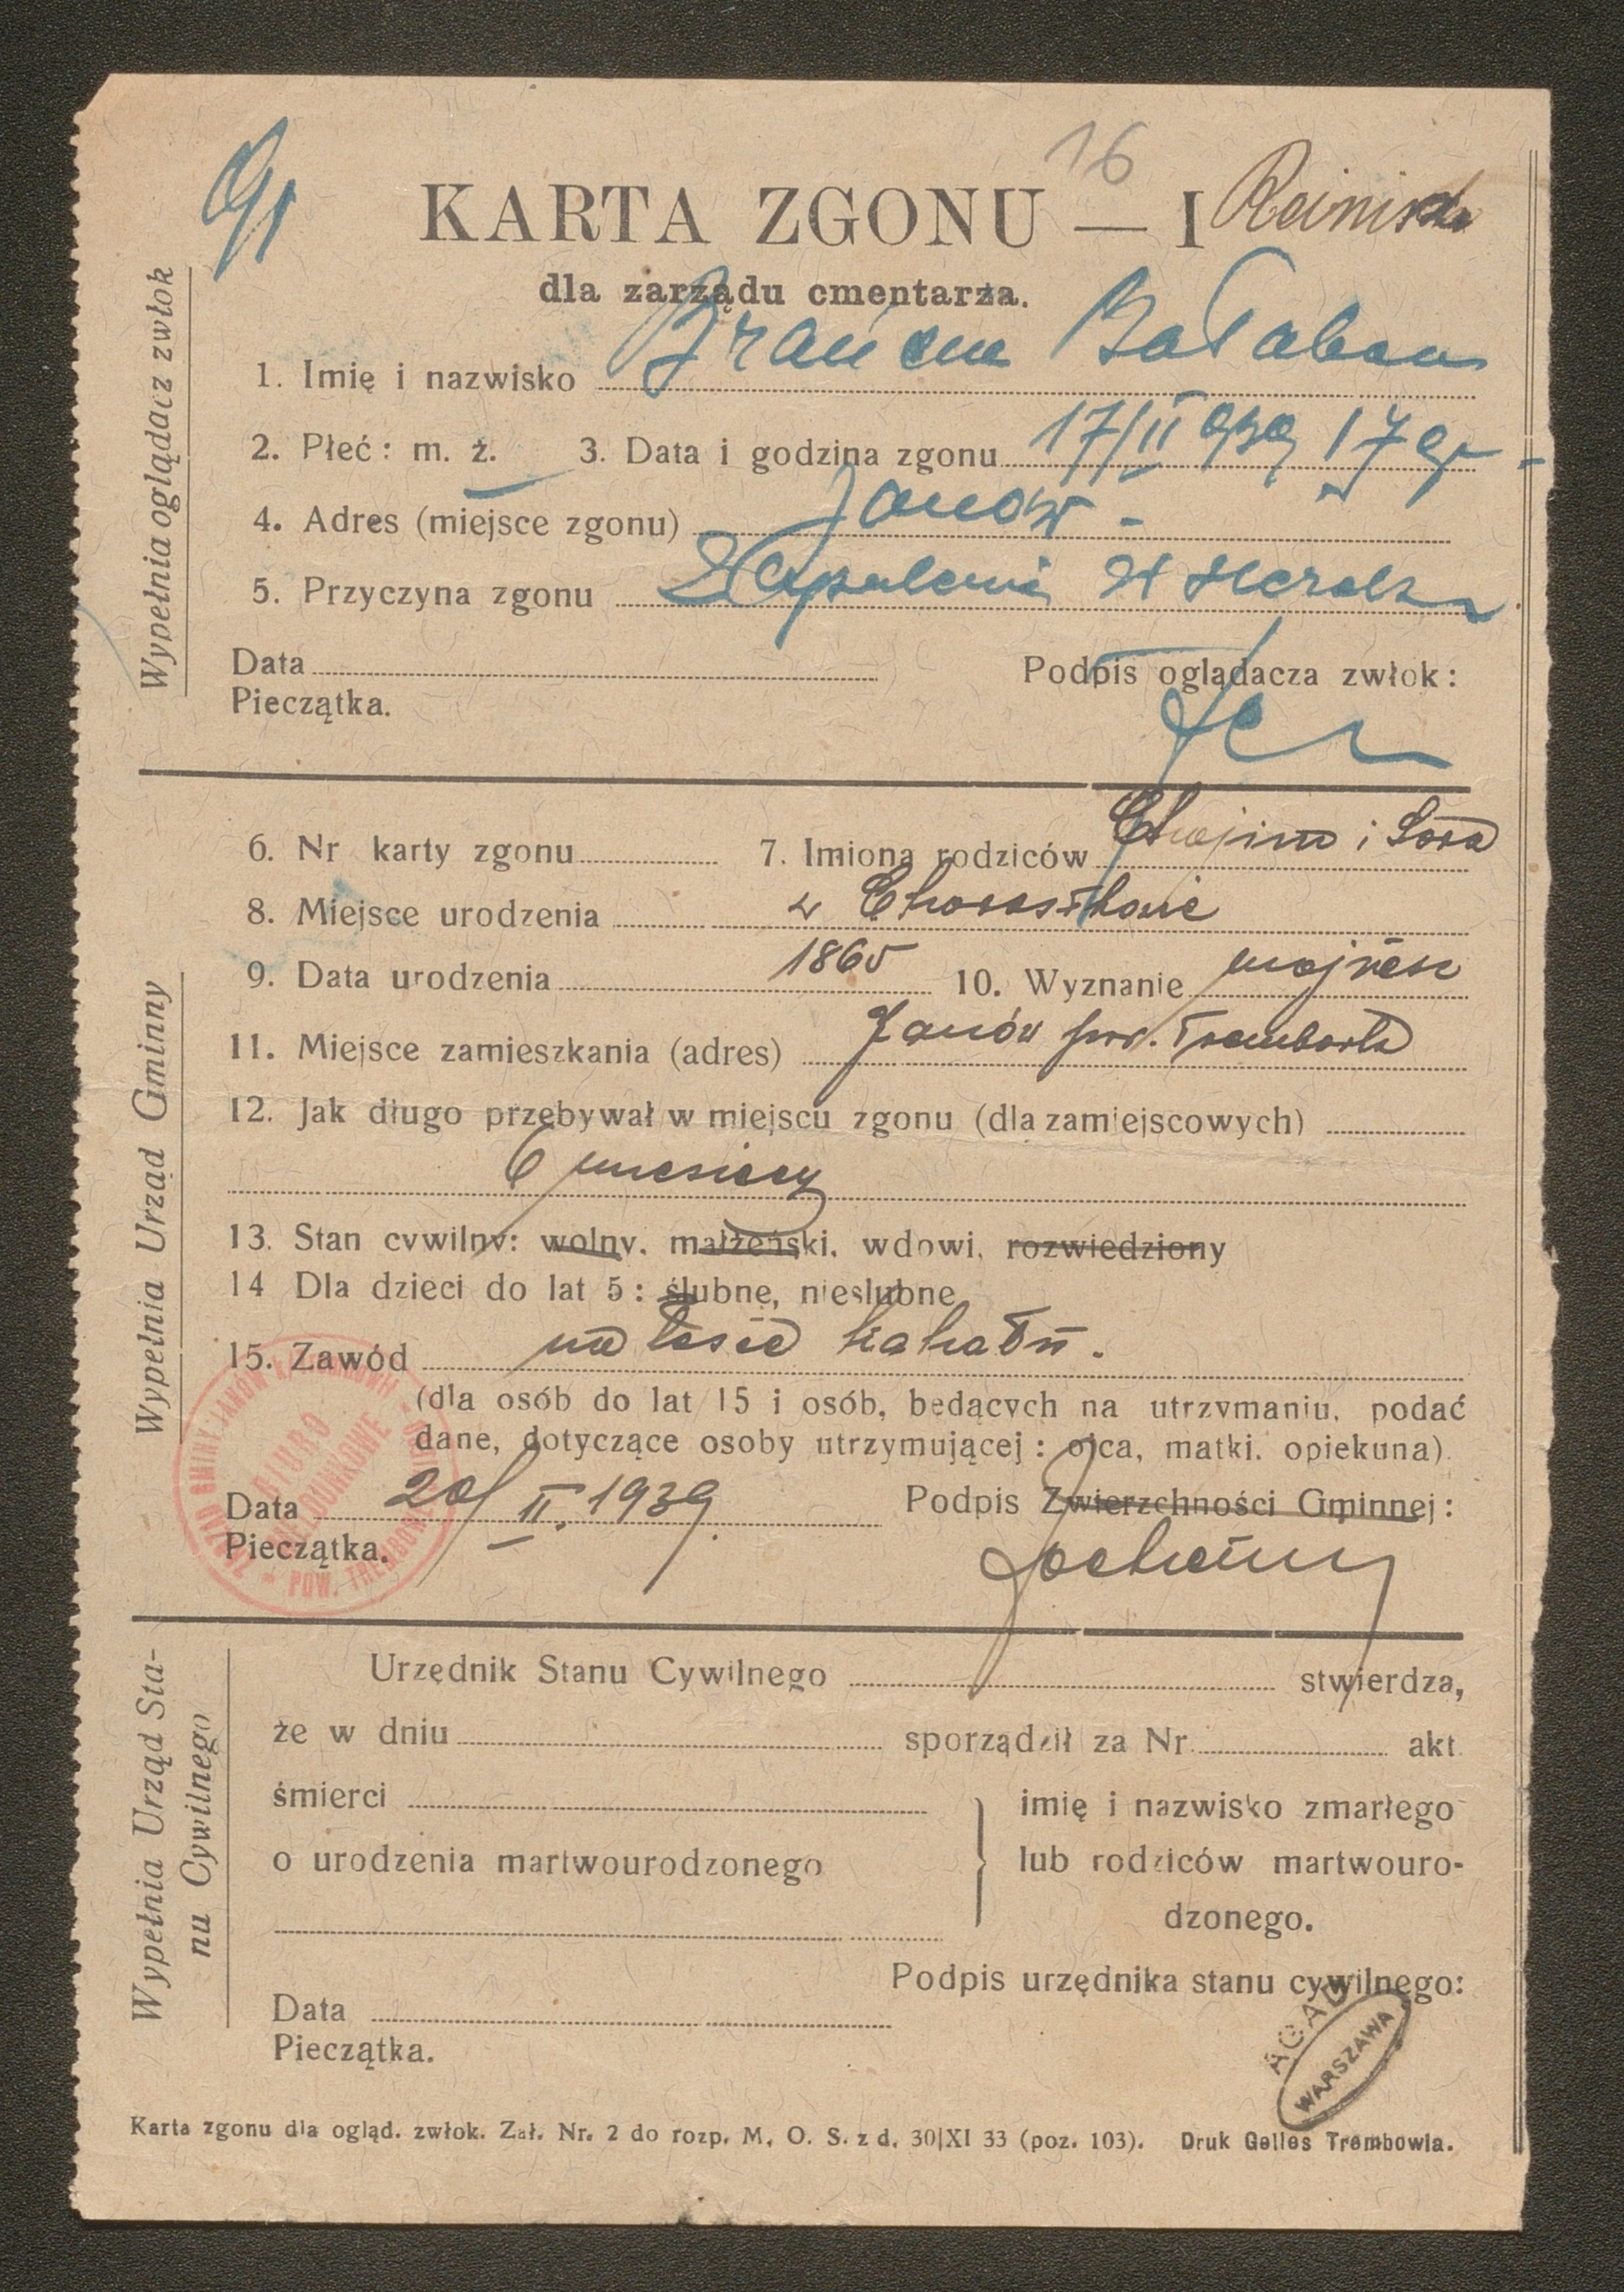 16
KARTA ZGONU — I
dla zarządu cmentarza.
Wypełnia oglądacz zwłok
1. Imię i nazwisko Bałaban
2. Płeć: m. ż. 3. Data i godzina zgonu 17/II 939 17
4. Adres (miejsce zgonu) Janów -
5. Przyczyna zgonu
Data
Podpis oglądacza zwłok:
Pieczątka.
Wypełnia Urząd Gminny
6. Nr karty zgonu 7. Imiona rodziców Chajim i Sora
8. Miejsce urodzenia w
9. Data urodzenia 1865 10. Wyznanie mojżesz
11. Miejsce zamieszkania (adres) Janów pow. Trembowla
12. Jak długo przebywał w miejscu zgonu (dla zamiejscowych)
6 miesięcy
13. Stan cywilny: wolny, małżeński, wdowi, rozwiedziony
14 Dla dzieci do lat 5: ślubne, nieślubne
15. Zawód na łasce kahału.
(dla osób do lat 15 i osób, będących na utrzymaniu, podać
dane, dotyczące osoby utrzymującej: ojca, matki, opiekuna).
Data 20/II. 1939. Podpis Zwierzchności Gminnej:
Pieczątka.
BIURO
MELDUNKOWE
POW. TREMBOWLA
Wypełnia Urząd Sta-
nu Cywilnego
Urzędnik Stanu Cywilnego stwierdza,
że w dniu sporządził za Nr. akt
śmierci imię i nazwisko zmarłego
o urodzenia martwourodzonego lub rodziców martwouro-
dzonego.
Podpis urzędnika stanu cywilnego:
Data
Pieczątka.
AGAD
WARSZAWA
Karta zgonu dla ogląd. zwłok. Zał. Nr. 2 do rozp. M. O. S. z d. 30|XI 33 (poz. 103). Druk Gelles Trembowla.